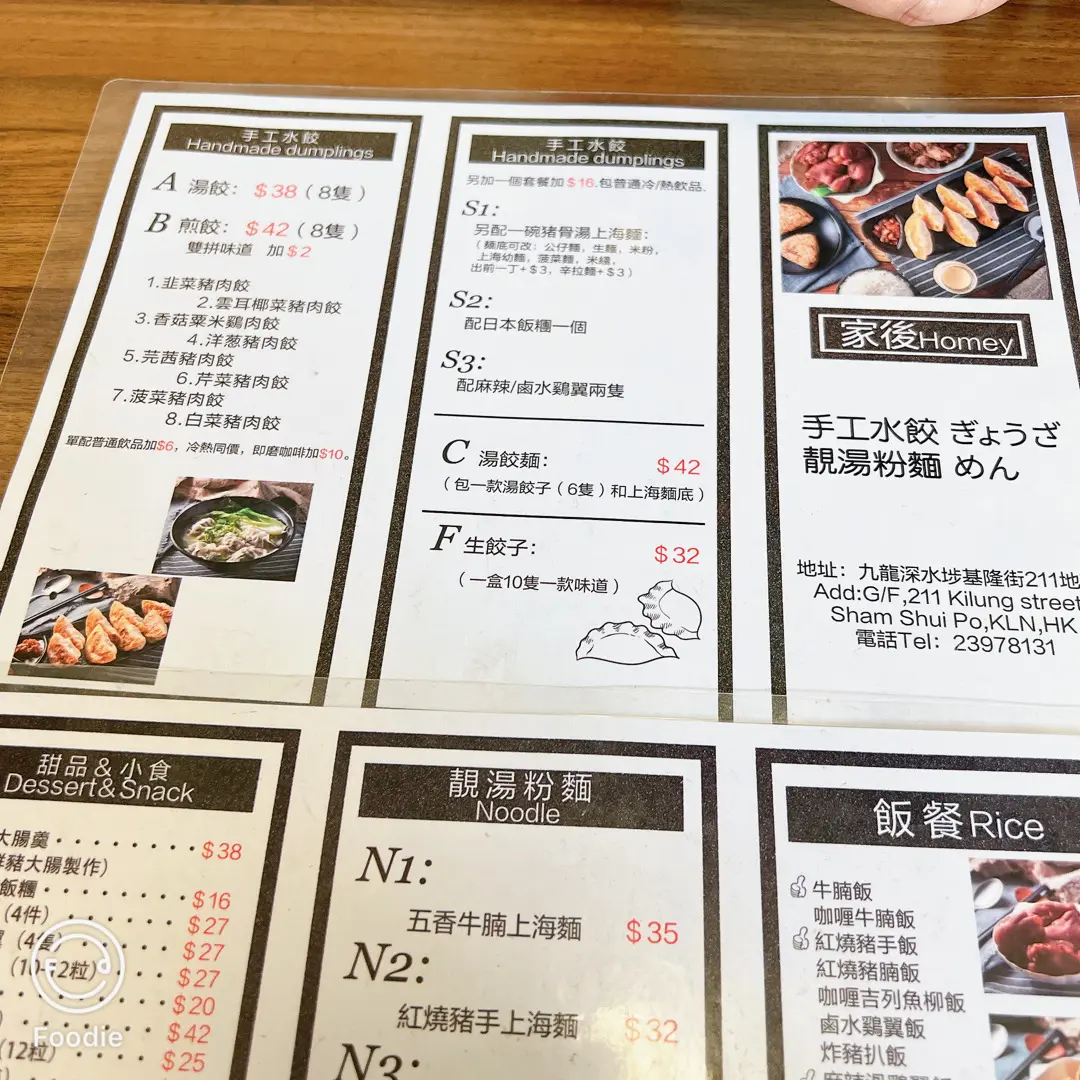 手工水餃
Handmade dumplings
A 湯餃：$38（8隻）
B 煎餃：$42（8隻）
雙拼味道 加$2
1.韭菜豬肉餃
2.雲耳椰菜豬肉餃
3.香菇粟米鷄肉餃
4.洋葱豬肉餃
5.芫茜豬肉餃
6.芹菜豬肉餃
7.菠菜豬肉餃
8.白菜豬肉餃
單配普通飲品加$6，冷熱同價，即磨咖啡加$10。
手工水餃
Handmade dumplings
另加一個套餐加$16.包普通冷/熱飲品.
S1:
另配一碗豬骨湯上海麵：
（麵底可改：公仔麵，生麵，米粉，
上海幼麵，菠菜麵，米綫，
出前一丁+$3，辛拉麵+$3）
S2:
配日本飯糰一個
S3:
配麻辣/鹵水鷄翼兩隻
C 湯餃麵： $42
（包一款湯餃子（6隻）和上海麵底）
F 生餃子： $32
（一盒10隻一款味道）
家後Homey
手工水餃 ぎょうざ
靚湯粉麵 めん
地址：九龍深水埗基隆街211地
Add:G/F,211 Kilung street
Sham Shui Po,KLN,HK
電話Tel：23978131
甜品&小食
Dessert&Snack
大腸羹········$38
豬大腸製作）
飯糰·········$16
（4件）······$27
（4隻）······$27
（10-12粒）····$27
$20
$42
（12粒）·····$25
靚湯粉麵
Noodle
N1:
五香牛腩上海麵 $35
N2:
紅燒豬手上海麵 $32
N3:
飯餐Rice
牛腩飯
咖喱牛腩飯
紅燒豬手飯
紅燒豬腩飯
咖喱吉列魚柳飯
鹵水鷄翼飯
炸豬扒飯
Foodie